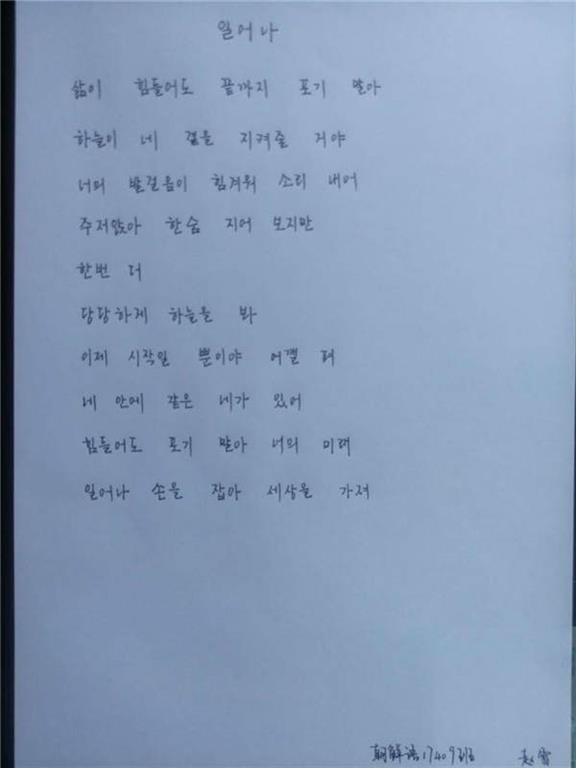 일어나
삶이 힘들어도 끝까지 포기 말아
하늘이 네 곁을 지켜줄 거야
너의 발걸음이 힘겨워 소리 내어
주저앉아 한숨 지어 보지만
한번 더
당당하게 하늘을 봐
이제 시작일 뿐이야 어깰 펴
네 안에 같은 네가 있어
힘들어도 포기 말아 너의 미래
일어나 손을 잡아 세상을 가져
朝鲜语17409班 赵雪